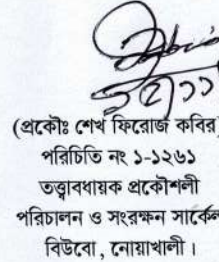 (প্রকৌঃ শেখ ফিরোজ কবির)
পরিচিতি নং ১-১২৬১
তত্ত্বাবধায়ক প্রকৌশলী
পরিচালন ও সংরক্ষন সার্কেল
বিউবো , নোয়াখালী।